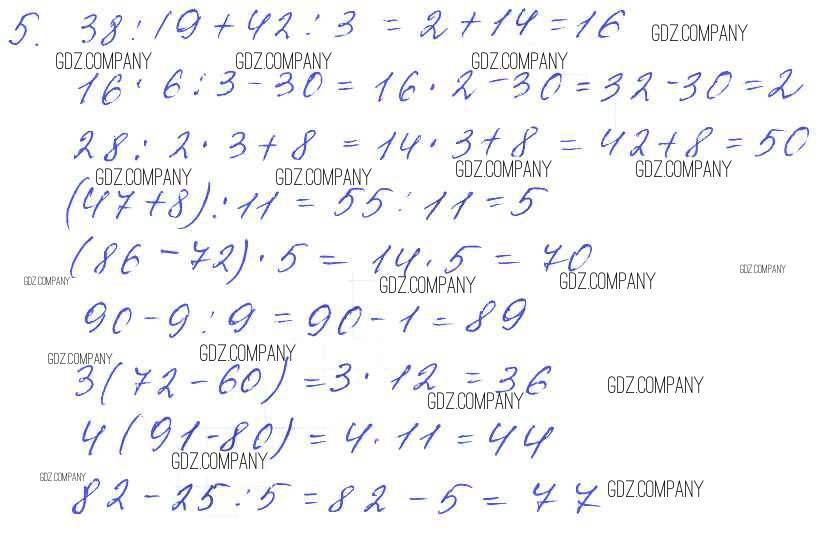 5. 38 : 19 + 42 : 3 = 2 + 14 = 16 GDZ.COMPANY
GDZ.COMPANY GDZ.COMPANY GDZ.COMPANY
16 · 6 : 3 - 30 = 16 · 2 - 30 = 32 - 30 = 2
28 : 2 · 3 + 8 = 14 · 3 + 8 = 42 + 8 = 50
GDZ.COMPANY GDZ.COMPANY GDZ.COMPANY GDZ.COMPANY
(47 + 8) : 11 = 55 : 11 = 5
(86 - 72) · 5 = 14 · 5 = 70 GDZ.COMPANY
GDZ.COMPANY GDZ.COMPANY GDZ.COMPANY
90 - 9 : 9 = 90 - 1 = 89
GDZ.COMPANY GDZ.COMPANY
3(72 - 60) = 3 · 12 = 36 GDZ.COMPANY
GDZ.COMPANY
4(91 - 80) = 4 · 11 = 44
GDZ.COMPANY
GDZ.COMPANY
82 - 25 : 5 = 82 - 5 = 77 GDZ.COMPANY